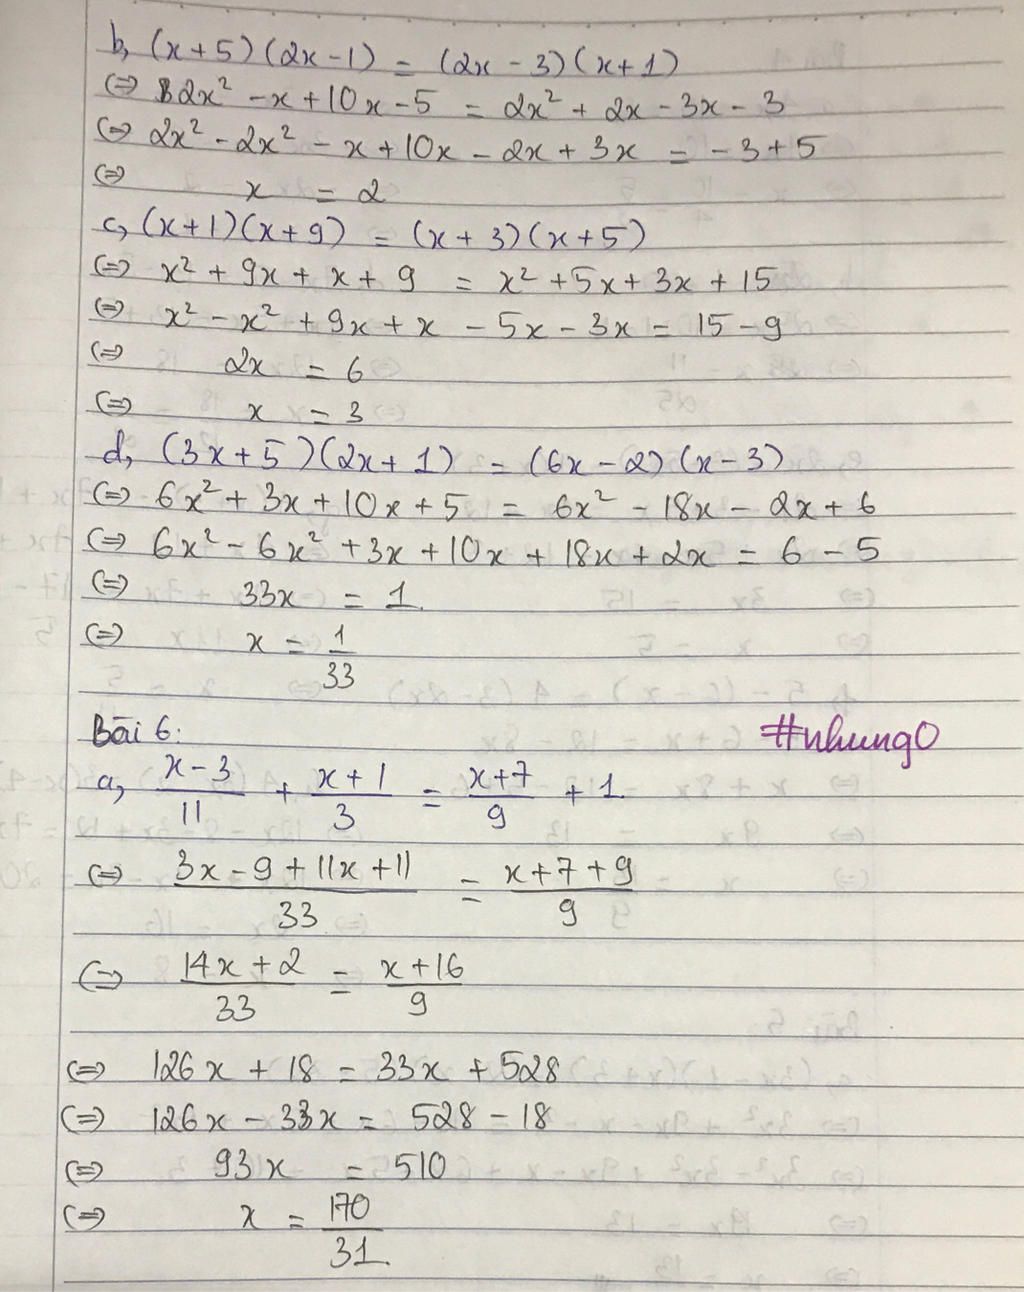 b, (x+5)(2x-1) = (2x-3)(x+1)
(=) 2x² - x + 10x - 5 = 2x² + 2x - 3x - 3
(=) 2x² - 2x² - x + 10x - 2x + 3x = -3 + 5
(=) x = 2
c, (x+1)(x+9) = (x+3)(x+5)
(=) x² + 9x + x + 9 = x² + 5x + 3x + 15
(=) x² - x² + 9x + x - 5x - 3x = 15 - 9
(=) 2x = 6
(=) x = 3
d, (3x+5)(2x+1) = (6x-2)(x-3)
(=) 6x² + 3x + 10x + 5 = 6x² - 18x - 2x + 6
(=) 6x² - 6x² + 3x + 10x + 18x + 2x = 6 - 5
(=) 33x = 1
(=) x = 1/33
Bài 6: #nhung0
a, (x-3)/11 + (x+1)/3 = (x+7)/9 + 1
(=) (3x - 9 + 11x + 11)/33 = (x+7+9)/9
(=) (14x+2)/33 = (x+16)/9
(=) 126x + 18 = 33x + 528
(=) 126x - 33x = 528 - 18
(=) 93x = 510
(=) x = 170/31